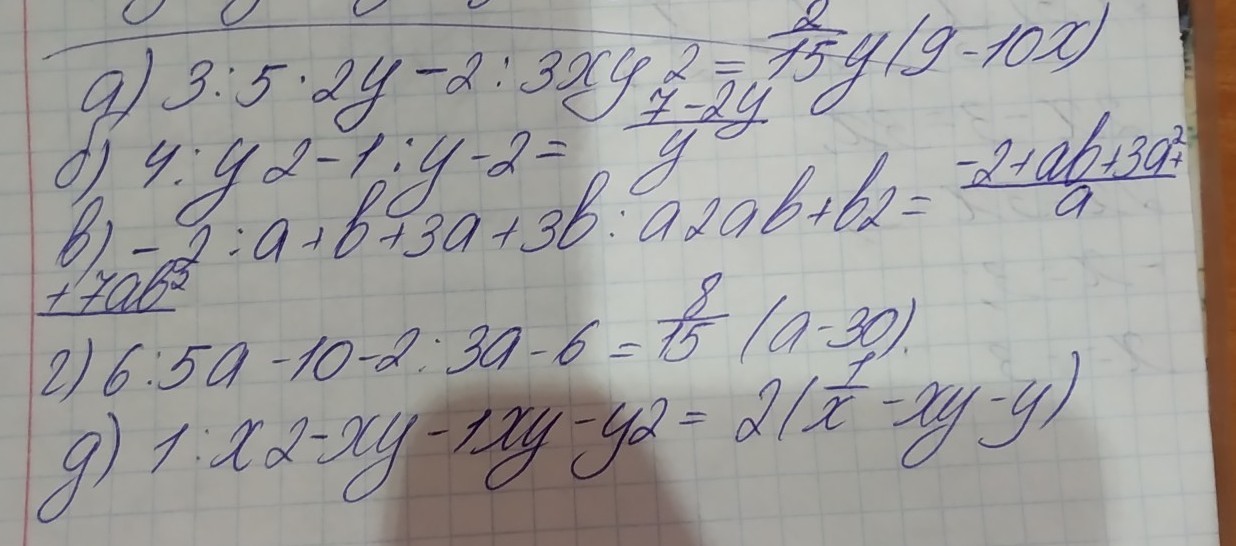 а) 3:5·2y-2:3xy2=2/15y(9-10x)
б) 4:y2-1:y-2=7-2y/y
в) -2:a+b+3a+3b:a2ab+b2=-2+ab+3a²+/a
+7ab²
г) 6:5a-10-2:3a-6=8/15(a-30).
д) 1:x2-xy-1xy-y2=2(1/x-xy-y)